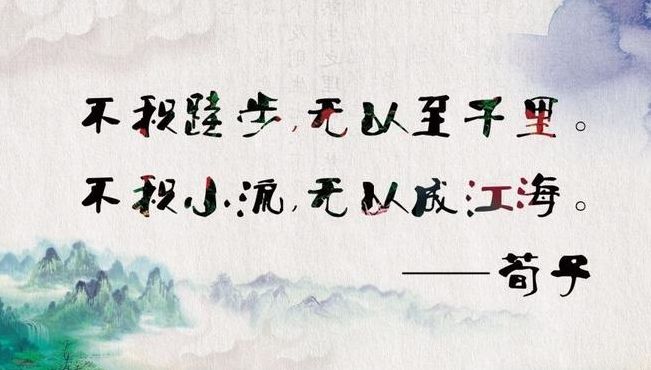 不积跬步,无以至千里。
不积小流,无以成江海。
——荀子